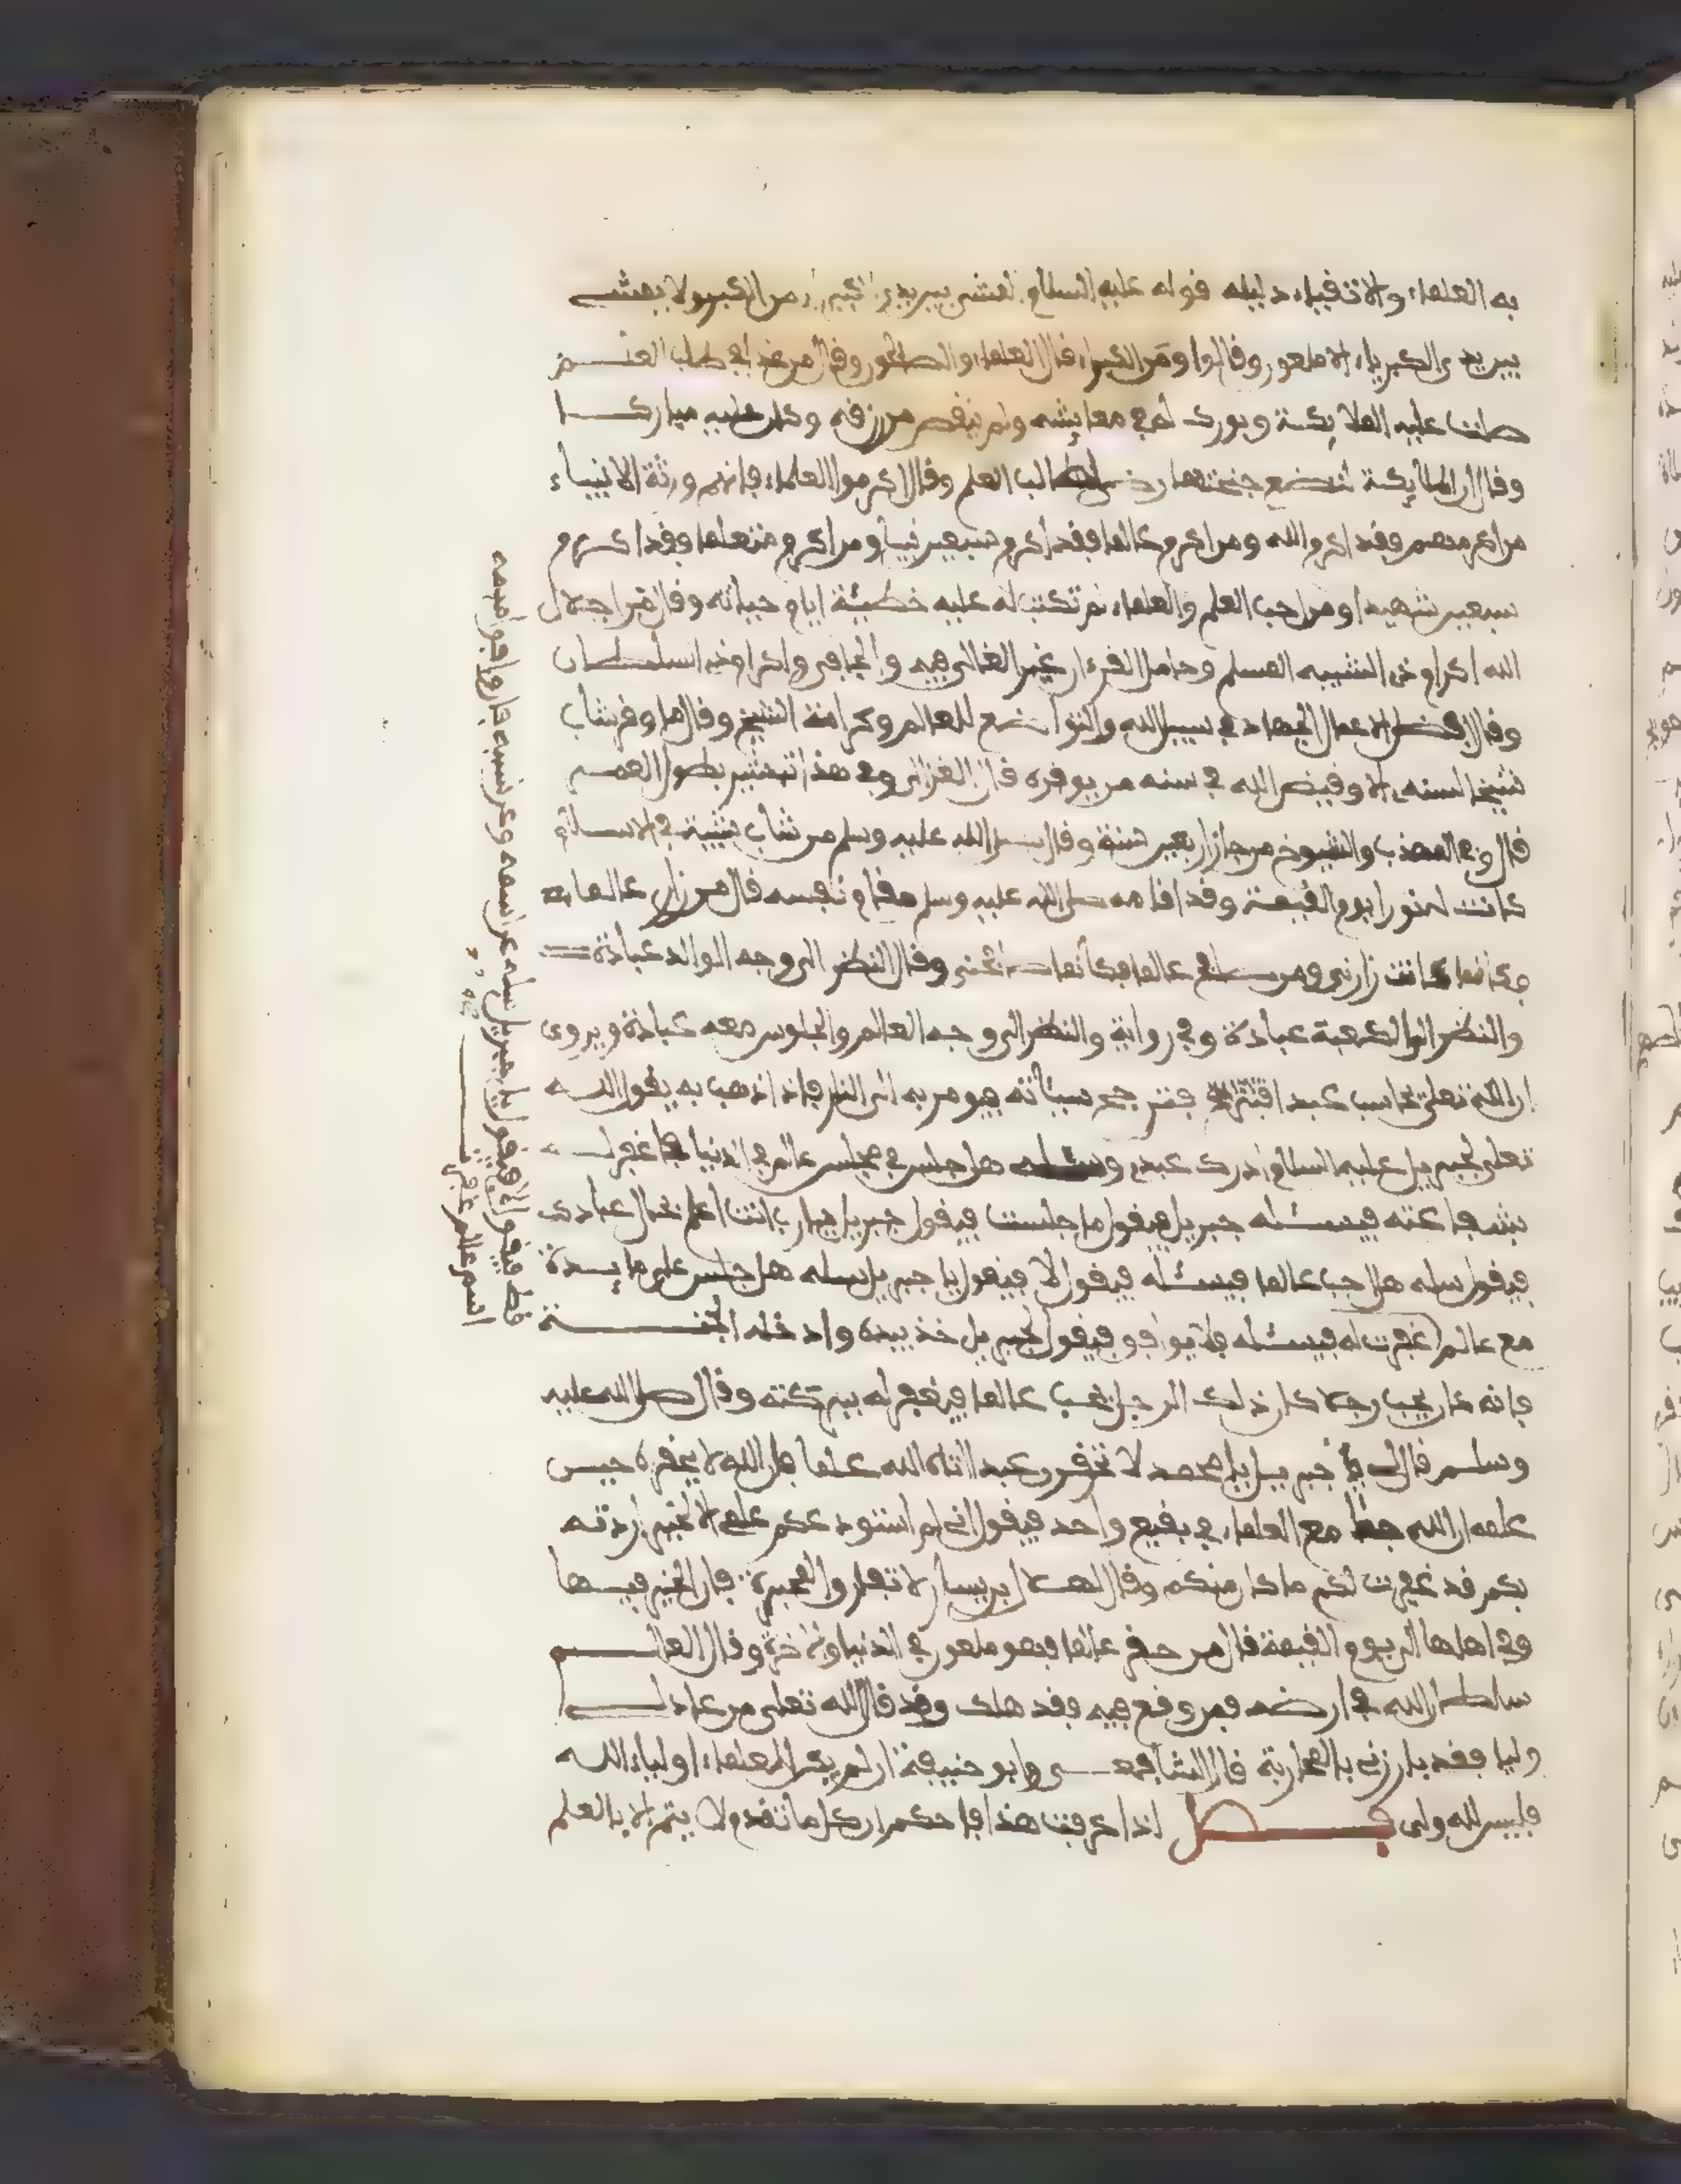 به العلماء والاتقياء دليله قوله عليه السلام امش بين يدي من الكبر ولا يمشي
بين يدي الكبرياء الا ملعون وقالوا ومن الكبراء قال العلماء والصالحون وقال من غدا في طلب العلم
صلت عليه الملايكة وبورك له في معايشه ولم ينقص من رزقه وكان عليه مباركا
وقال ان الملايكة لتضع اجنحتها رضى لطالب العلم وقال اكرموا العلماء فانهم ورثة الانبياء
من اكرمهم فقد اكرم الله ومن اكرم عالما فقد اكرم سبعين نبيا ومن اكرم متعلما فقد اكرم
سبعين شهيدا ومن احب العلم والعلماء لم تكتب له عليه خطيئة ايام حياته وقال من اجلال
الله اكرام ذي الشيبه المسلم وحامل القرءان غير الغالي فيه والجافي واكرام ذي السلطان
وقال افضل الاعمال الجهاد في سبيل الله والتواضع للعالم وكرامة الشيخ وقال ما وقر شاب
شيخا لسنه الا وقيض الله في سنه من يوقره قال الغزالي وفي هذا تبشير بطول العمر
قال في المهذب والشيوخ من جاز اربعين سنة وقال صلى الله عليه وسلم من شاب شيبة في الاسلام
كانت له نورا يوم القيمة وقد اقامه صلى الله عليه وسلم مقام نفسه قال من زار عالما
فكانما كانت زارني ومن صافح عالما فكانما صافحني وقال النظر الى وجه الوالد عبادة
والنظر الى الكعبة عبادة وفي رواية والنظر الى وجه العالم والجلوس معه عبادة ويروى
ان الله تعلى يحاسب عبدا فترجح سيئاته فيومر به الى النار فاذا ذهب به يقول الله
تعلى لجبريل عليه السلام ادرك عبدي وسئله هل جلس في مجلس عالم في الدنيا فاغفر له
بشفاعته فيسئله جبريل فيقول ما جلست فيقول جبريل يا رب انت اعلم بحال عبادك
فيقول سله هل احب عالما فيسئله فيقول لا فيقول يا جبريل سله هل جلس على مايدة
مع عالم غفرت له فيسئله فلا يوافق فيقول لجبريل خذ بيده وادخله الجنة
فانه كان يحب رجلا كان ذلك الرجل يحب عالما فيغفر له ببركته وقال صلى الله عليه
وسلم قال لي جبريل يا محمد لا تحقرن عبدا اتاه الله علما فان الله لا يحقره حين
علمه ان الله جمع العلماء في بقيع واحد فيقول اني لم استودعكم علمي الا لخير اردته
بكم قد غفرت لكم ما كان منكم وقال لهلال بن يسار لا تفارق المحبرة فان الخير فيها
وفي اهلها الى يوم القيمة قال من حقر عالما فهو ملعون في الدنيا والاخرة وقال العالم
سلطان الله في ارضه فمن وقع فيه فقد هلك وقد قال الله تعلى من عادى لي
وليا فقد بارزني بالمحاربة قال الشافعي وابو حنيفة ان لم يكن العلماء اولياء الله
فليس لله ولي فصل اذا عرفت هذا فاحكم ان كل ما تقدم لا يتم الا بالعلم
قط فيقول لا فيقول يا جبريل سله عن اسمه وعن نسبه فان وافق اسمه
اسم عالم غفرت